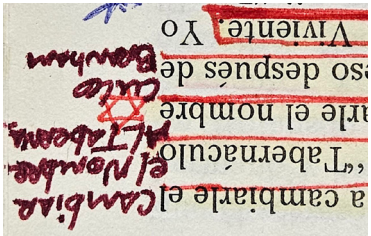 a cambiarle el
“Tabernáculo
arle el nombre
eso después de
Viviente. Yo
Cambiar
el Nombre
AL Taberná
culo
Branham